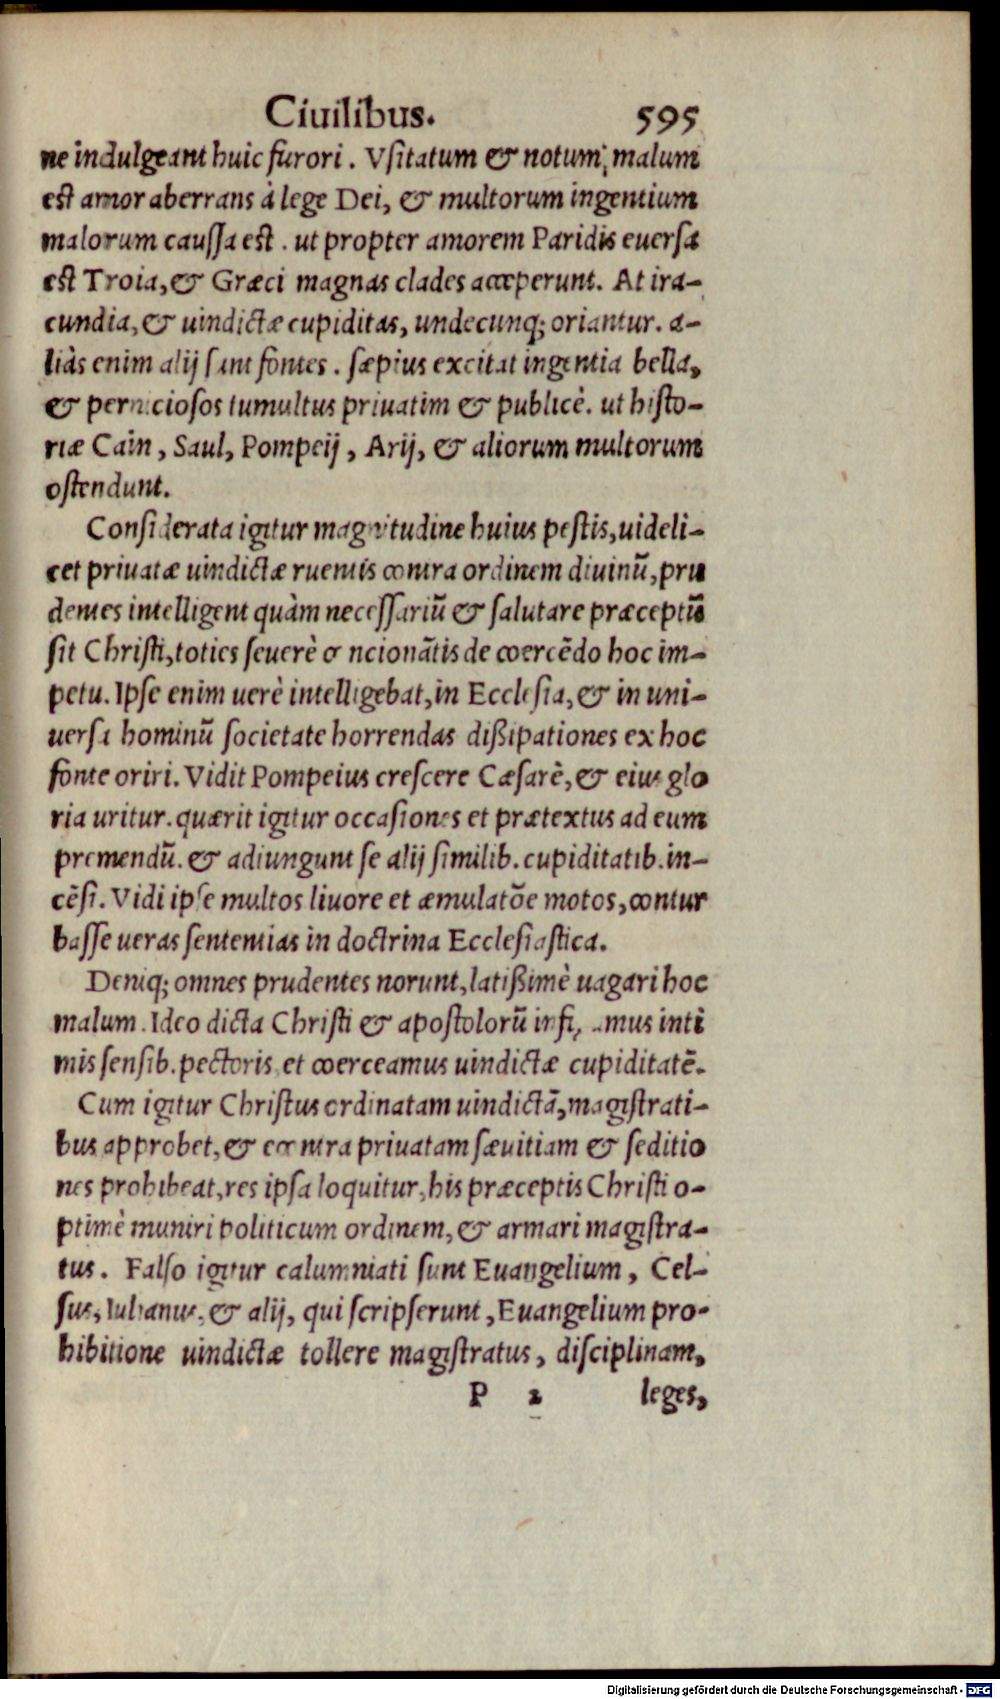 Ciuilibus. 595
ne indulgeant huic furori. Vsitatum & notum malum
est amor aberrans à lege Dei, & multorum ingentium
malorum caussa est. ut propter amorem Paridis euersa
est Troia, & Græci magnas clades acceperunt. At ira-
cundia, & uindictæ cupiditas, undecunq; oriantur. a-
liàs enim alij sunt fontes. sæpius excitat ingentia bella,
& perniciosos tumultus priuatim & publicè. ut histo-
riæ Cain, Saul, Pompeij, Arij, & aliorum multorum
ostendunt.
Considerata igitur magnitudine huius pestis, uideli-
cet priuatæ uindictæ ruentis contra ordinem diuinũ, pru
dentes intelligent quàm necessariũ & salutare præceptũ
sit Christi, toties seuerè concionãtis de coercẽdo hoc im-
petu. Ipse enim uerè intelligebat, in Ecclesia, & in uni-
uersa hominũ societate horrendas dißipationes ex hoc
fonte oriri. Vidit Pompeius crescere Cæsarẽ, & eius glo
ria uritur. quærit igitur occasiones et prætextus ad eum
premendũ. & adiungunt se alij similib. cupiditatib. in-
cẽsi. Vidi ipse multos liuore et æmulatõe motos, contur
basse ueras sententias in doctrina Ecclesiastica.
Deniq; omnes prudentes norunt, latißimè uagari hoc
malum. Ideo dicta Christi & apostolorũ inti
mis sensib. pectoris et coerceamus uindictæ cupiditatẽ.
Cum igitur Christus ordinatam uindictã, magistrati-
bus approbet, & contra priuatam sæuitiam & seditio
nes prohibeat, res ipsa loquitur, his præceptis Christi o-
ptimè muniri politicum ordinem, & armari magistra-
tus. Falso igitur calumniati sunt Euangelium, Cel-
sus, Iulianus, & alij, qui scripserunt, Euangelium pro-
hibitione uindictæ tollere magistratus, disciplinam,
P 2 leges,
Digitalisierung gefördert durch die Deutsche Forschungsgemeinschaft - DFG